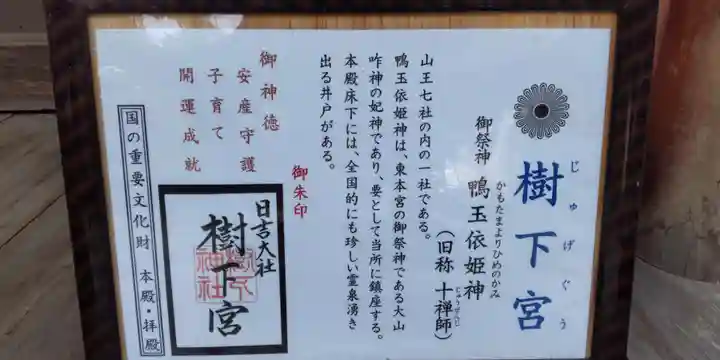 樹下宮
じゅげぐう
御祭神 鴨玉依姫神
かもたまよりひめのかみ
(旧称 十禅師)
じゅうぜんじ
山王七社の内の一社である。
鴨玉依姫神は、東本宮の御祭神である大山
咋神の妃神であり、要として当所に鎮座する。
本殿床下には、全国的にも珍しい霊泉湧き
出る井戸がある。
御朱印
御神徳
安産守護
子育て
開運成就
日吉大社
樹下宮
樹下
神社
国の重要文化財 本殿・拝殿